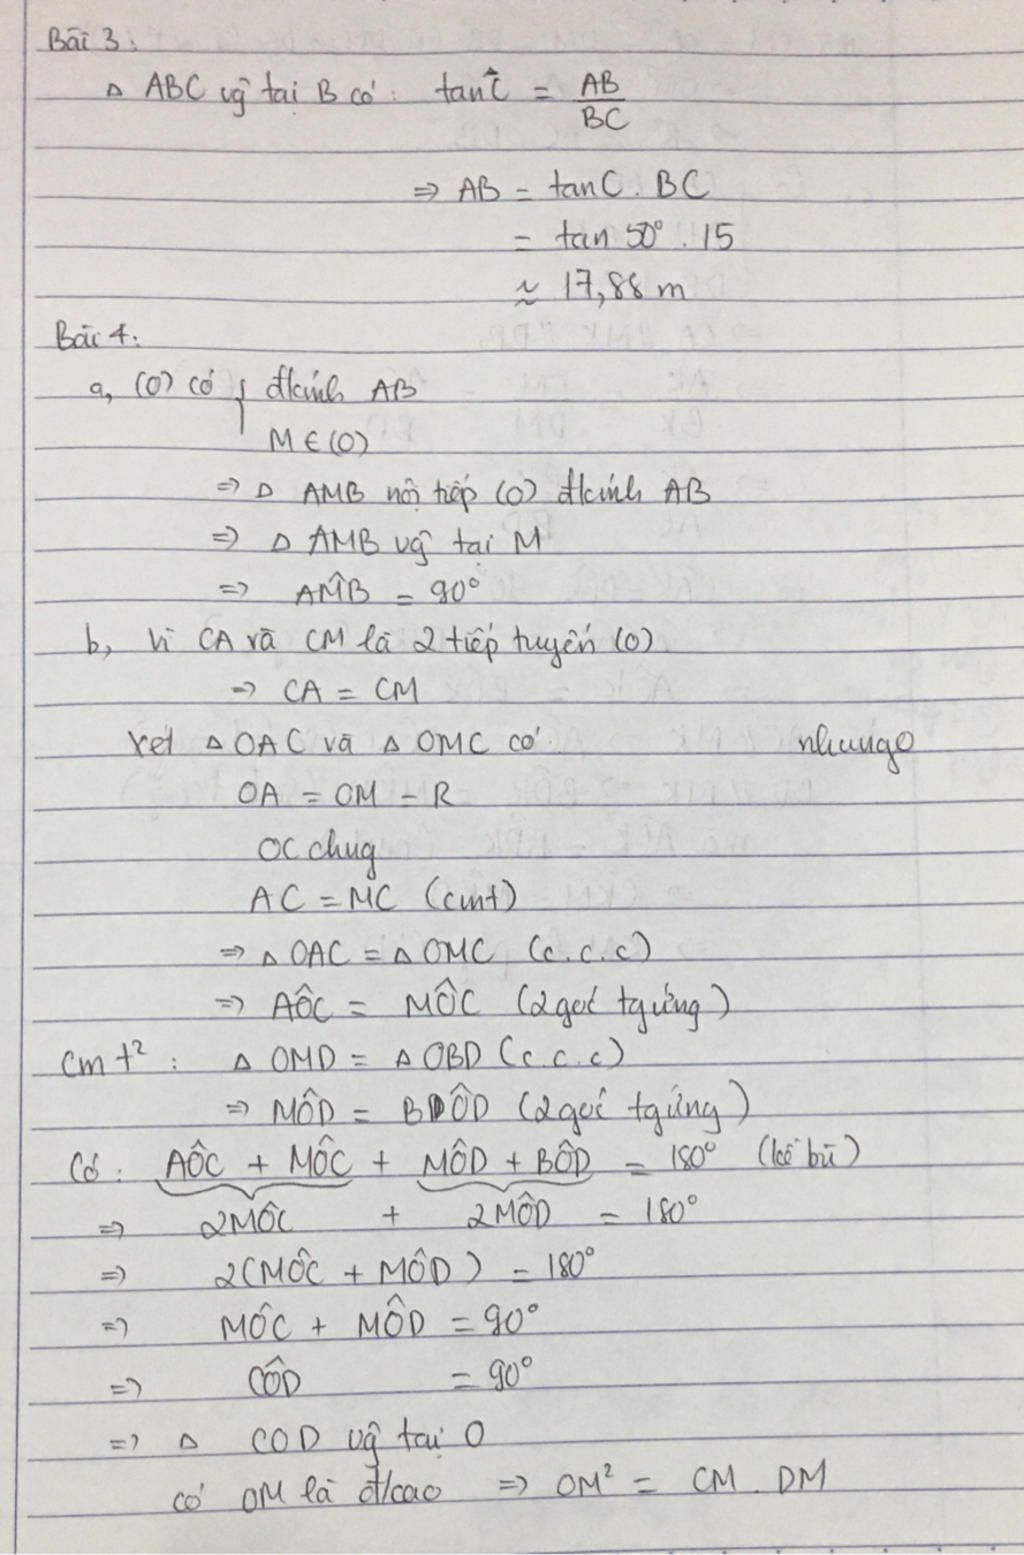 Bài 3:
△ ABC vg tại B có: tan Ĉ = AB/BC
⇒ AB = tan C . BC
= tan 50° . 15
≈ 17,88 m
Bài 4:
a, (O) có { đkính AB
M ∈ (O)
⇒ △ AMB nội tiếp (O) đkính AB
⇒ △ AMB vg tại M
⇒ AM̂B = 90°
b, Vì CA và CM là 2 tiếp tuyến (O)
⇒ CA = CM
Xét △ OAC và △ OMC có: nhungo
OA = OM = R
OC chug
AC = MC (cmt)
⇒ △ OAC = △ OMC (c.c.c)
⇒ AÔC = MÔC (2 góc tgứng)
Cm t²: △ OMD = △ OBD (c.c.c)
⇒ MÔD = BÔD (2 góc tgứng)
Có: AÔC + MÔC + MÔD + BÔD = 180° (kề bù)
⇒ 2MÔC + 2MÔD = 180°
⇒ 2(MÔC + MÔD) = 180°
⇒ MÔC + MÔD = 90°
⇒ CÔD = 90°
⇒ △ COD vg tại O
có OM là đ/cao ⇒ OM² = CM . DM